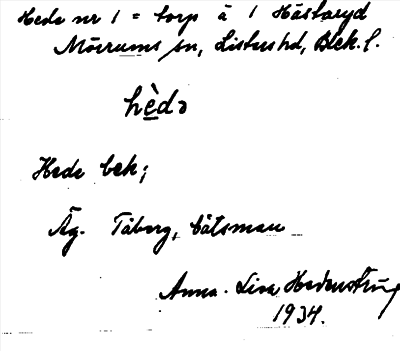 Hede nr 1 = torp å 1 Hästaryd
Mörrums sn, Listers hd, Blek. l.
hèdə
Hede bek;
Äg. Tåberg, båtsman
Anna-Lisa Hedenskug
1934.